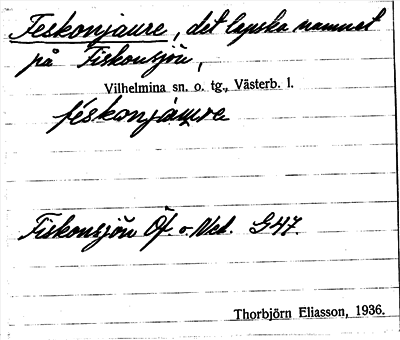 Feskonjaure, det lapska namnet
på Fiskonsjön,
Vilhelmina sn. o. tg., Västerb. l.
féskonjàu̯re
Fiskonsjön Öf. o. Ned. G47.
Thorbjörn Eliasson, 1936.